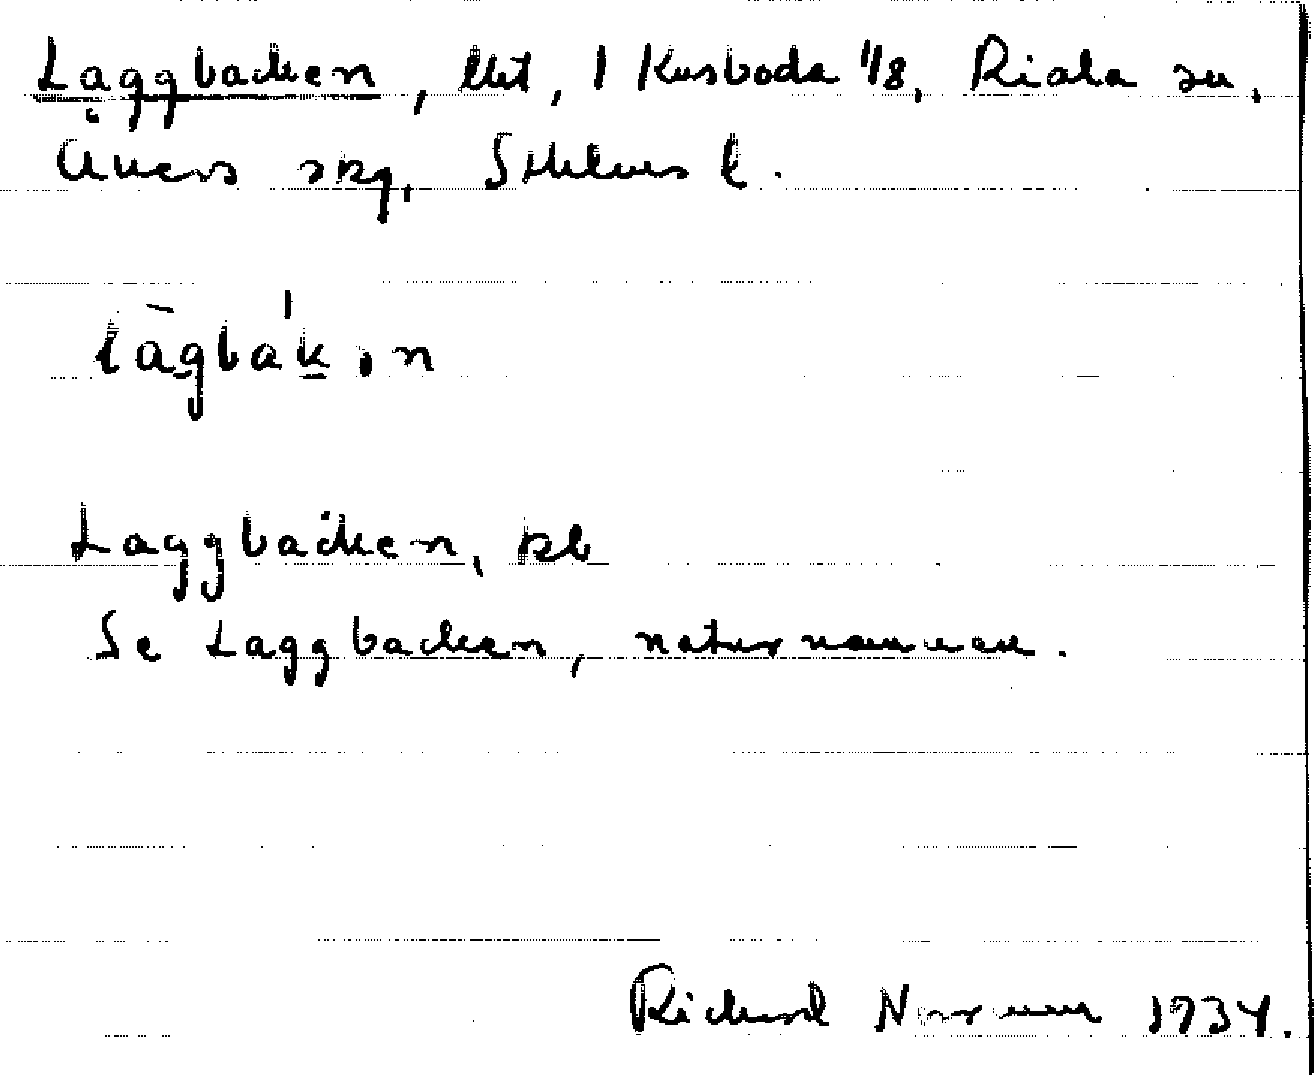 Laggbacken, lht, 1 Kusboda 1/8, Riala sn,
Åkers skg, Sthlms l.
làgbák ın
Laggbacken, bb
Se Laggbacken, naturnamnen.
Richard Norrman 1934.